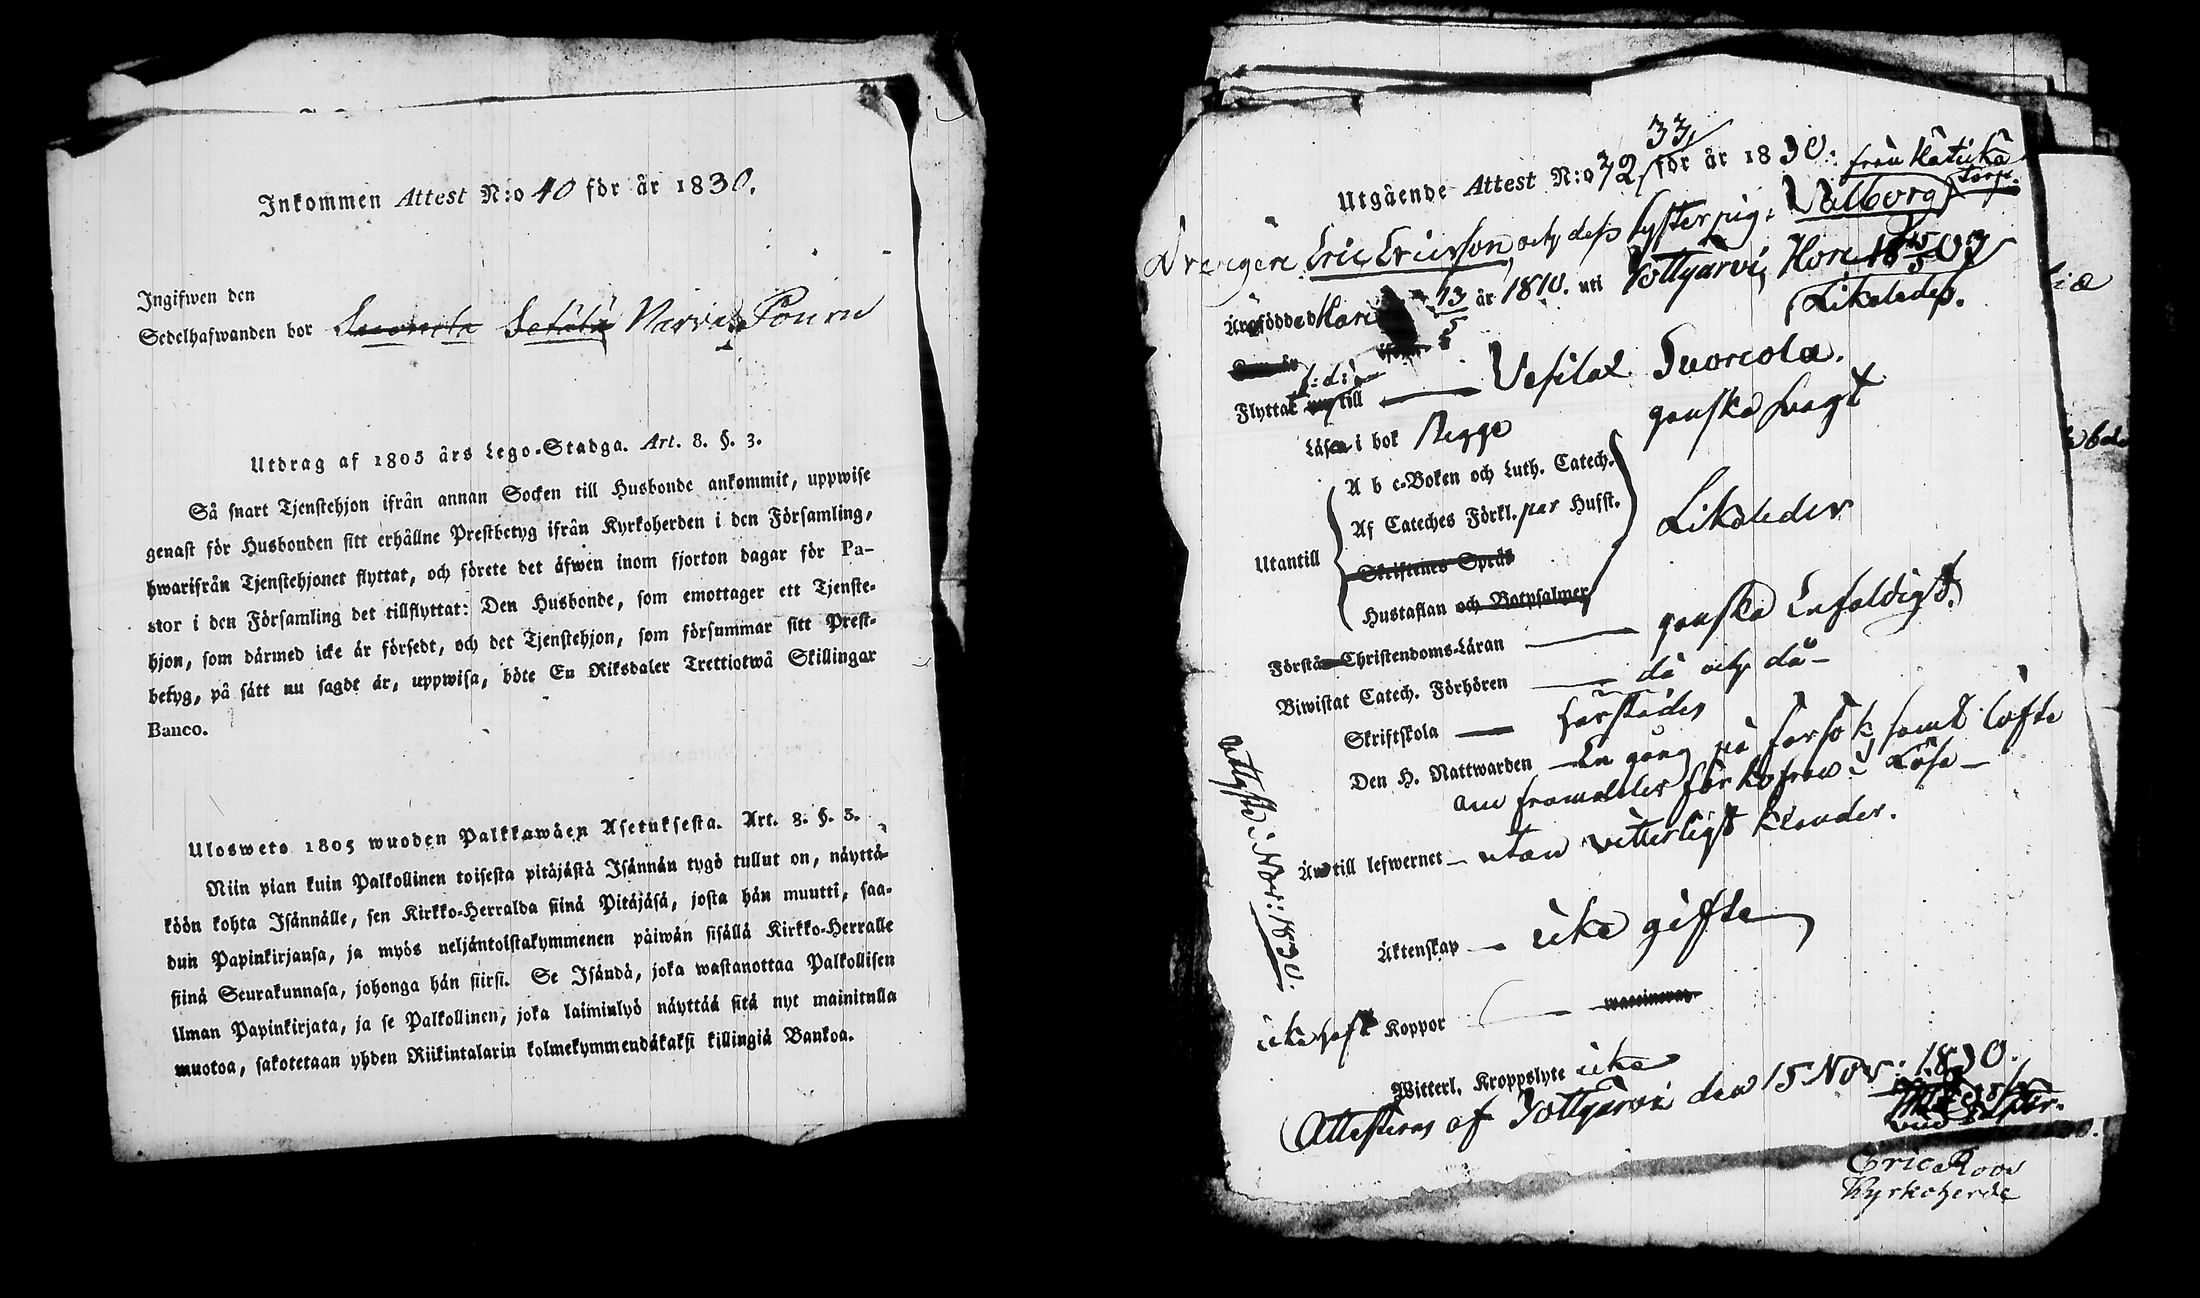 Inkommen Attest N:o 40 för år 1830.
Ingifwen den
Sedelhafwanden bor Suoniela Setälä Narva Pouru
Utdrag af 1805 års Lego-Stadga. Art. 8. §. 3.
Så snart Tjenstehjon ifrån annan Socken till Husbonde ankommit, uppwise
genast för Husbonden sitt erhållne Prestbetyg ifrån Kyrkoherden i den Församling,
hwarifrån Tjenstehjonet flyttat, och förete det äfwen inom fjorton dagar för Pa-
stor i den Församling det tillflyttat: Den Husbonde, som emottager ett Tjenste-
hjon, som därmed icke är försedt, och det Tjenstehjon, som försummar sitt Prest-
betyg, på sätt nu sagdt är, uppwisa, böte En Riksdaler Trettiotwå Skillingar
Banco.
Ulosweto 1805 wuoden Palkkawäen Asetuksesta. Art. 8. §. 3.
Niin pian kuin Palkollinen toisesta pitäjästä Isännän tygö tullut on, näyttä-
köön kohta Isännälle, sen Kirkko-Herralda siinä Pitäjäsä, josta hän muutti, saa-
dun Papinkirjansa, ja myös neljäntoistakymmenen päiwän sisällä Kirkko-Herralle
siinä Seurakunnasa, johonga hän siirsi. Se Isändä, joka wastanottaa Palkollisen
ilman Papinkirjata, ja se Palkollinen, joka laiminlyö näyttää sitä nyt mainitulla
muotoa, sakotetaan yhden Riikintalarin kolmekymmendäkaksi killingiä Bankoa.
33
Utgående Attest N:o 32 för år 1830. från Katiska
torp.
Drängen Eric Ericsson och dess Systerpig: Valborg
Äro födde d Hari 13/5 år 1810. uti Tottijärvi, Hon 18 15/5 07
Likaledes.
Flyttat till Vesilax Suoniola.
Läsa i bok Begge ganska svagt
Utantill
A b c-Boken och Luth. Catech.
Af Cateches Förkl. par Husst. Likaledes
Skriftenes Språk
Hustaflan och Botpsalmer
Förstå Christendoms-Läran ganska Enfaldigt.
Biwistat Catech. Förhören då och då
Skriftskola härstädes
Den H. Nattwarden En gång på försök, samt löfte
om framdeles förkofran i Läsa
Än till lefwernet utan vitterligt klander.
Äktenskap icke gifte
icke haft Koppor waccineras
Witterl. Kroppslyte icke
Attesteras af Tottijärvi den 15 Nov: 1830.
Eric Roos
Kyrkoherde
utflytte i Nov: 1830.